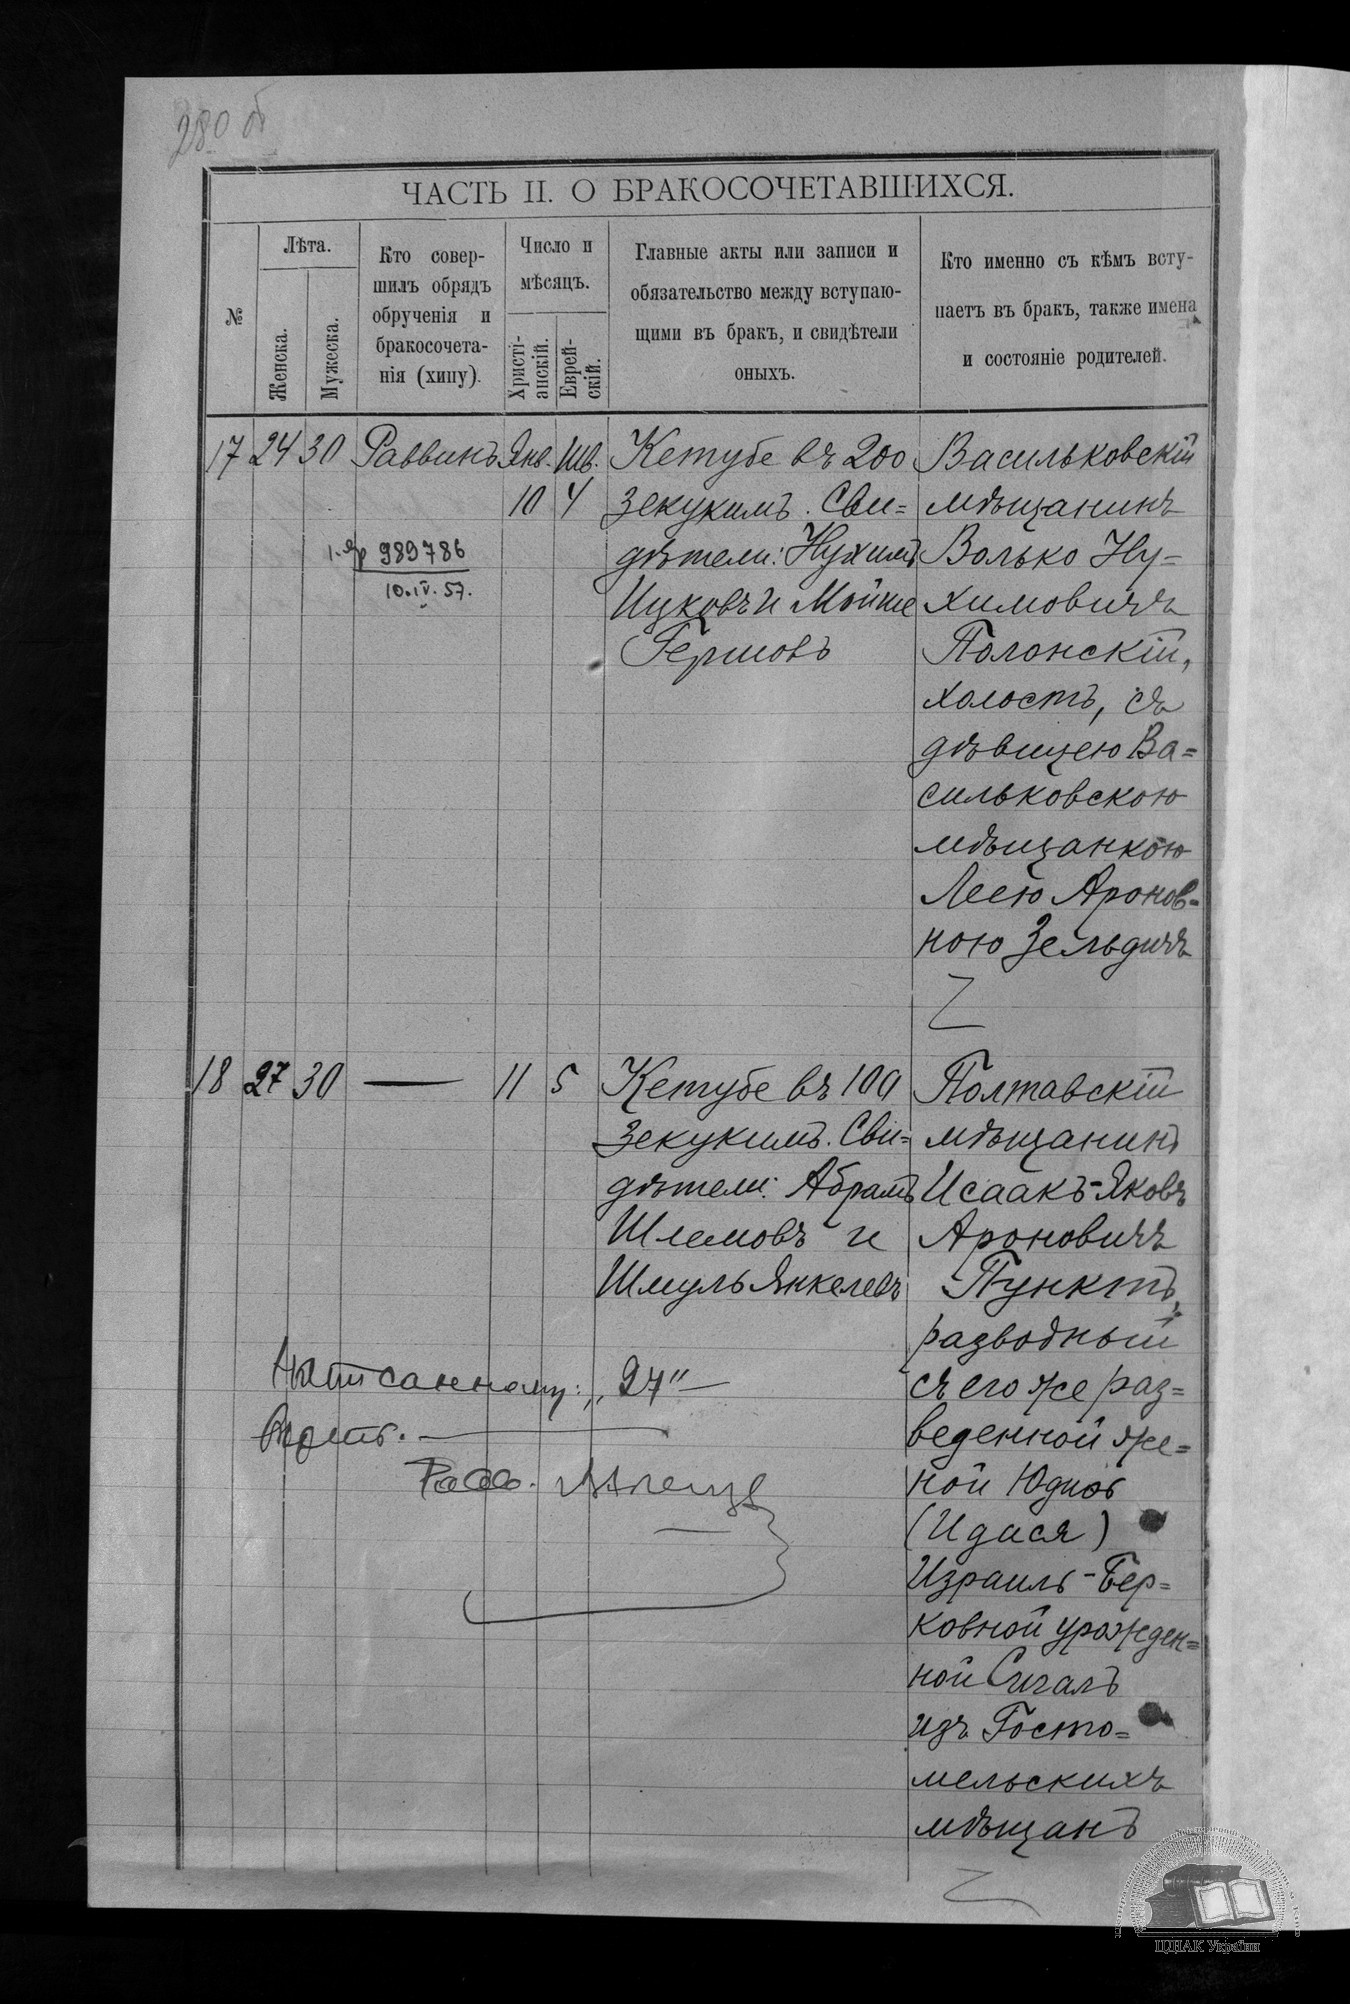 280 об
ЧАСТЬ II. О БРАКОСОЧЕТАВШИХСЯ.
№
Лѣта.
Женска.
Мужеска.
Кто совер-
шилъ обрядъ
обрученія и
бракосочета-
нія (хипу).
Число и
мѣсяцъ.
Христі-
анскій.
Еврей-
скій.
Главные акты или записи и
обязательство между вступаю-
щими въ бракъ, и свидѣтели
оныхъ.
Кто именно съ кѣмъ всту-
паетъ въ бракъ, также имена
и состояніе родителей.
17 24 30 Раввинъ Янв. Шв.
10 4
989786
10.IV.57.
Кетубе въ 200
зекукимъ. Сви=
дѣтели: Нухимъ
Ицковъ и Мойше
Гершовъ
Васильковскій
мѣщанинъ
Волько Ну=
химовичъ
Полонскій,
холостъ, съ
дѣвицею Ва=
сильковскою
мѣщанкою
Леею Аронов=
ною Зельдичъ
18 27 30 — 11 5
Кетубе въ 100
Зекукимъ. Сви=
дѣтели: Абрамъ
Шлемовъ и
Шмуль Янкелевъ
Полтавскій
мѣщанинъ
Исаакъ-Яковъ
Ароновичъ
Пунктъ,
разводный
съ его же раз=
веденной же=
ной Юдиѳ
(Идися)
Израиль-Бер=
ковной урожден=
ной Сигалъ
изъ Госто=
мельскихъ
мѣщанъ
„27"—
Равв.
ЦДІАК України